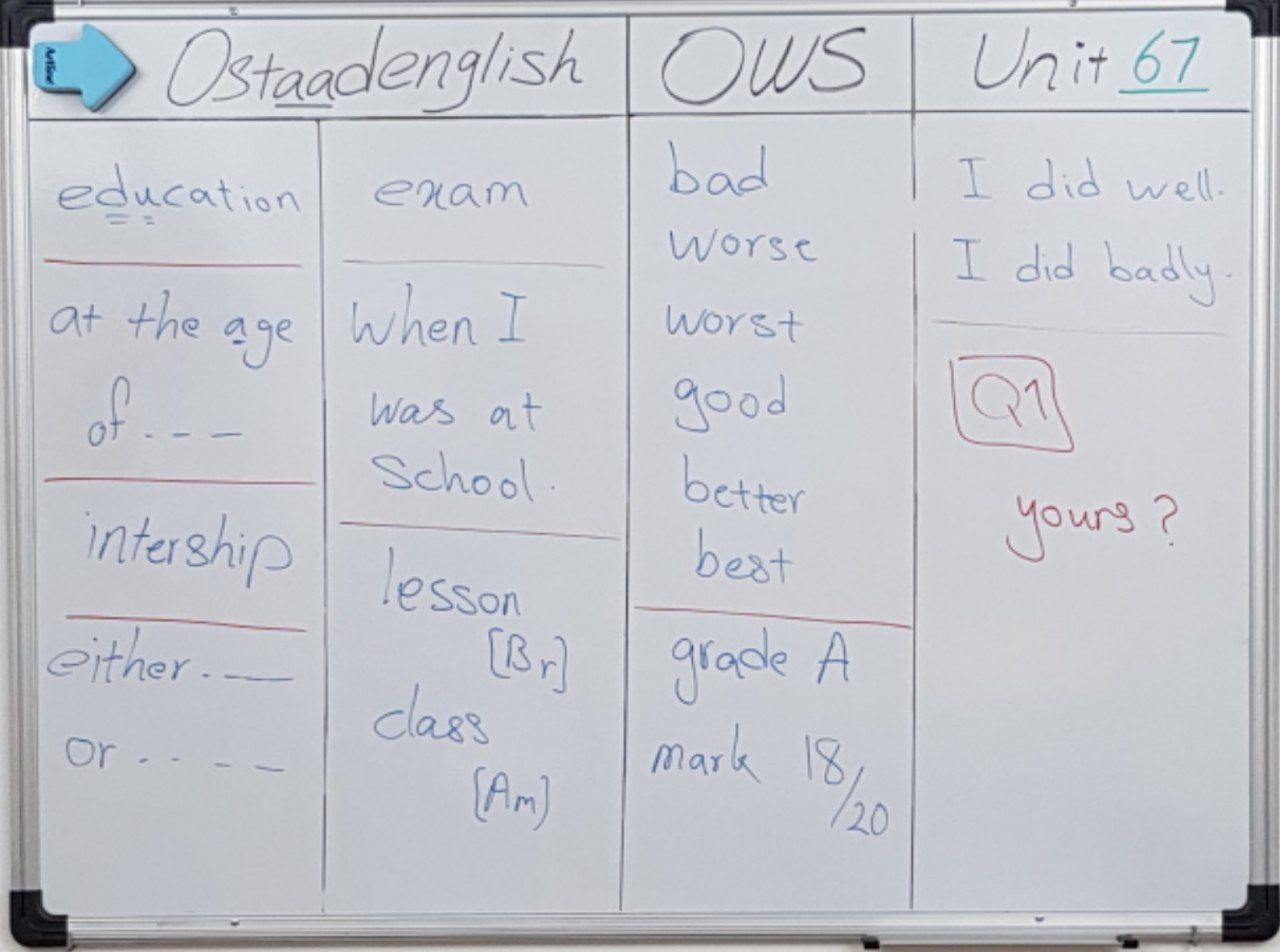 Ostaadenglish
OWS
Unit 67
education
at the age
of . - - -
intership
either . —
or . . - - -
exam
When I
was at
School.
lesson
[Br]
class
[Am]
bad
worse
worst
good
better
best
grade A
mark 18/20
I did well.
I did badly.
Q1
yours?